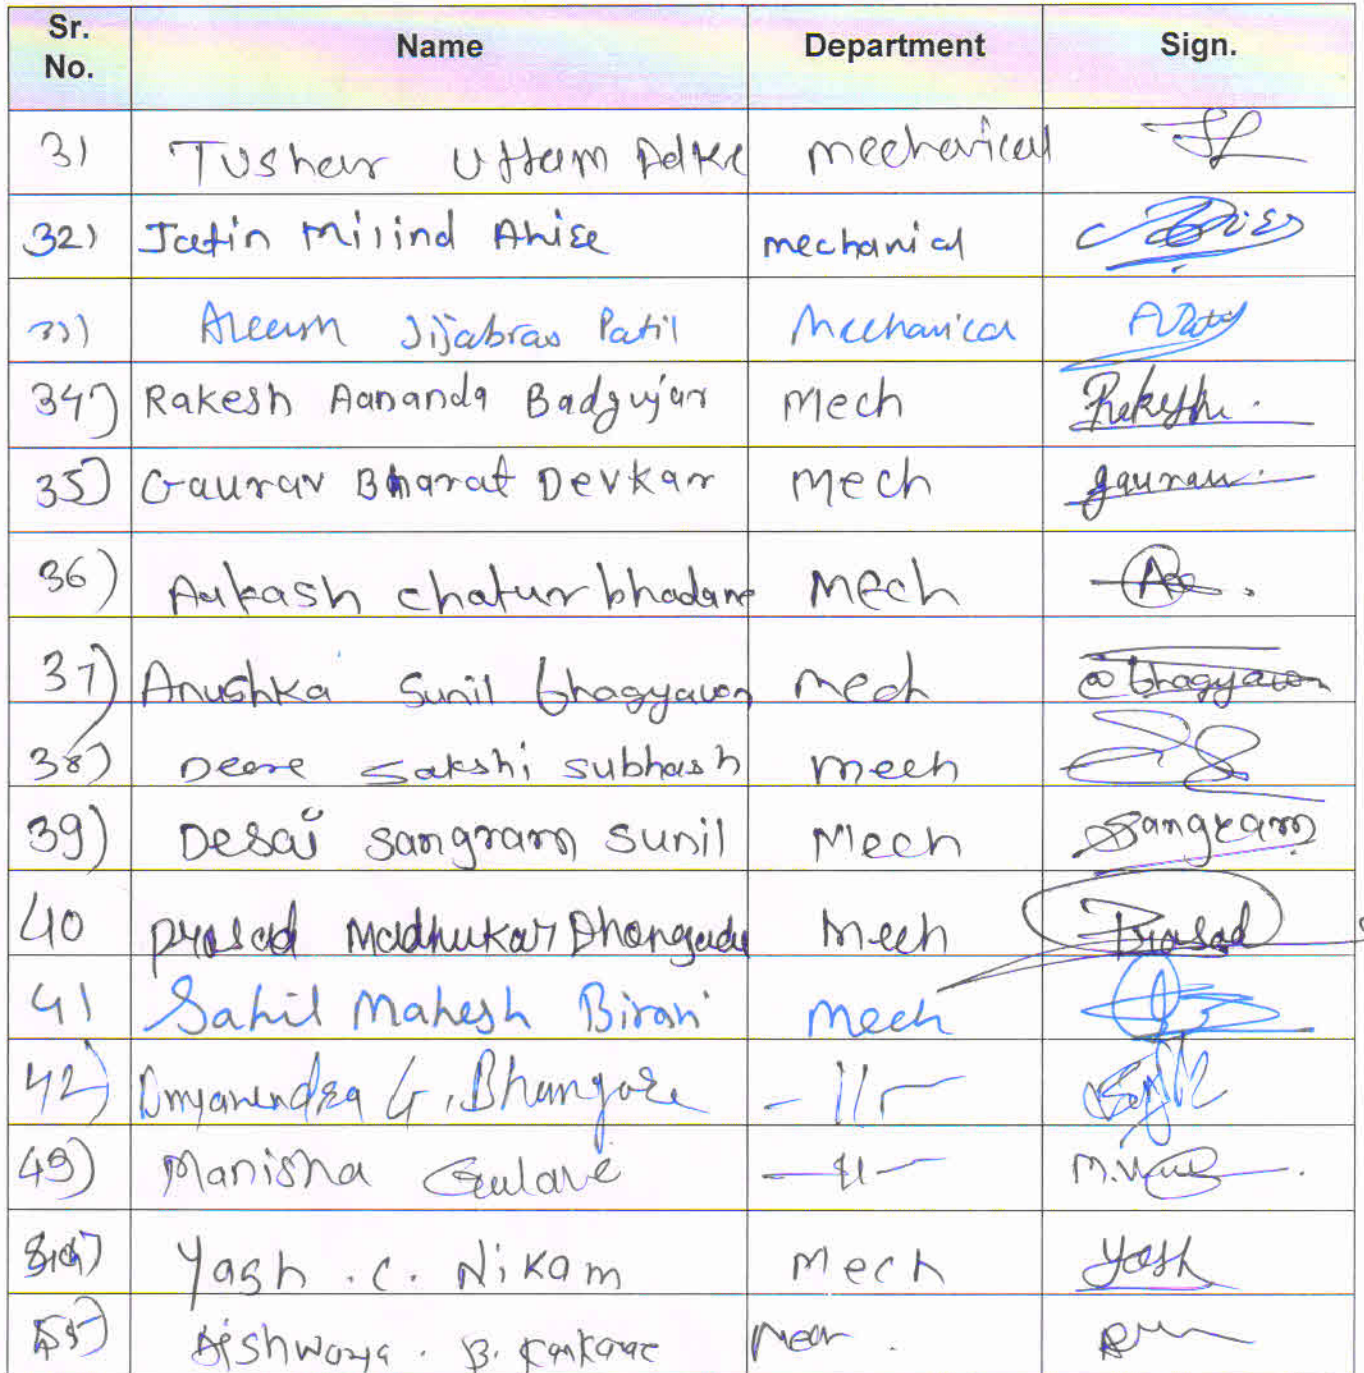 Sr. No. Name Department Sign.
31 Tushar Uttam mechanical
32) Jatin Milind Ahire mechanical
33) Jijabrao Patil Mechanical
34) Rakesh Aananda Badgujar Mech Rakesh.
35) Gaurav Bharat Devkar Mech gaurav.
36) Aakash chatur bhadane Mech
37) Anushka Sunil bhagyawan Mech bhagyawan
38) Deore Sakshi Subhash Mech
39) Desai Sangram Sunil Mech Sangram
40 Prasad Madhukar Mech Prasad
41 Sahil Mahesh Birari Mech
42) G. -11-
43) Manisha -11-
Yash . C. Nikam Mech Yash
Aishwarya . B.